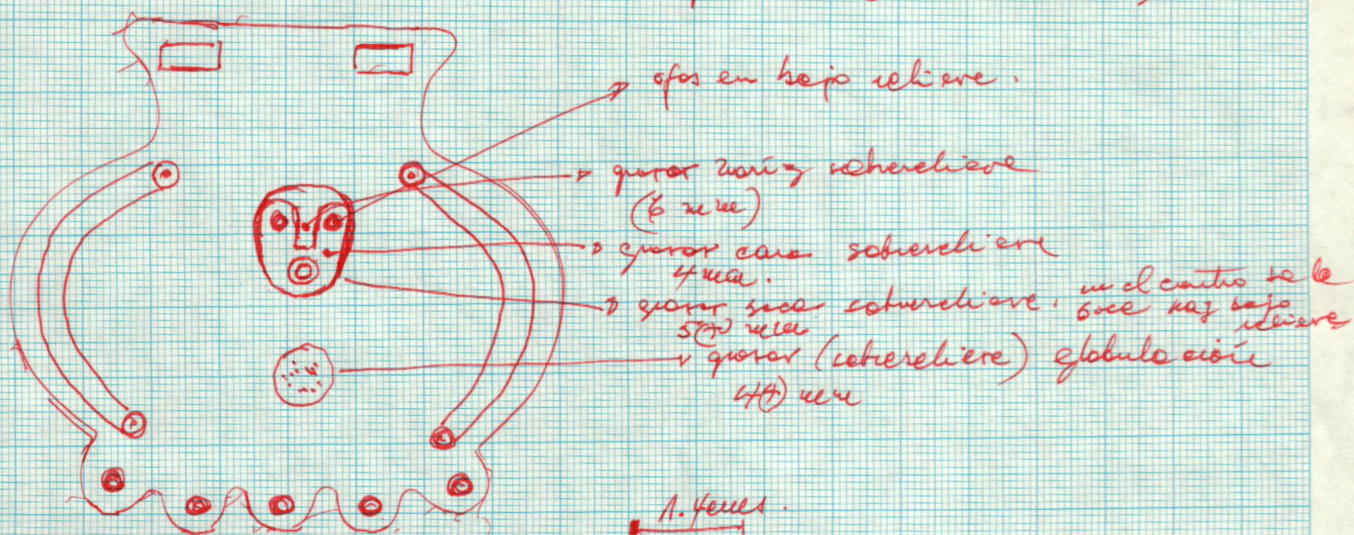 ojos en bajo relieve.
grosor nariz sobrerelieve
(6 mm)
grosor cara sobrerelieve
4 mm.
grosor boca sobrerelieve. en el centro de la
boca mas bajo
relieve
5(+) mm
grosor (sobrerelieve) globulación
4(+) mm